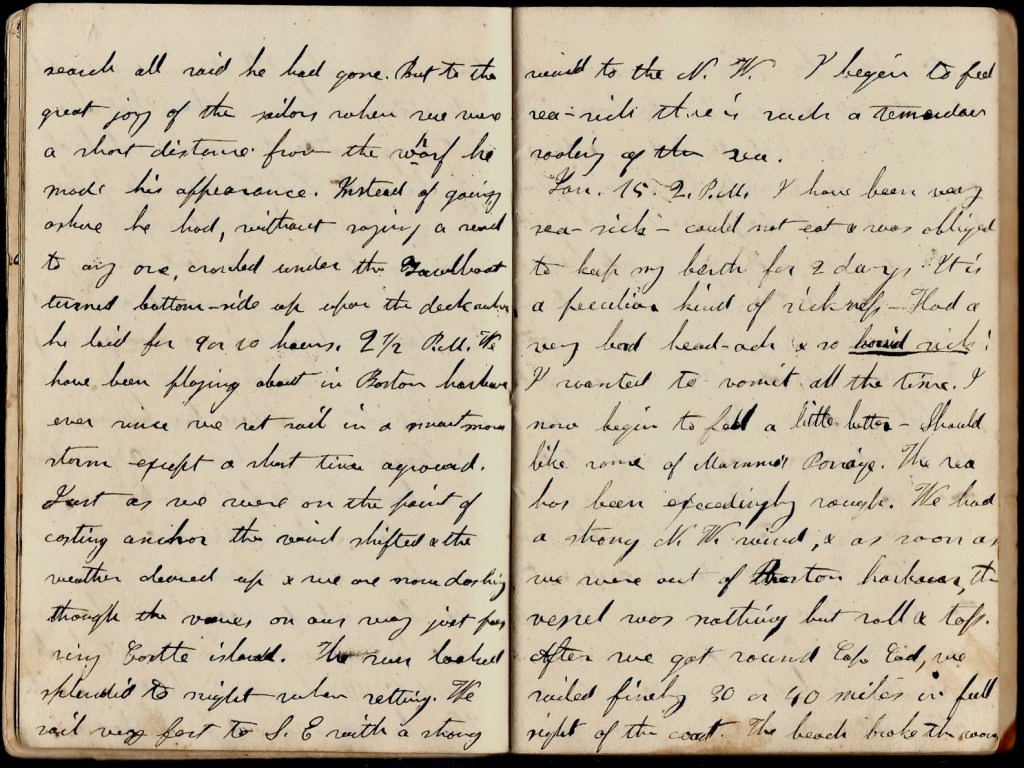 search all said he had gone. But to the
great joy of the sailors when we were
a short distance from the wharf he
made his appearance. Instead of going
ashore he had, without saying a word
to any one, crawled under the
turned bottom-side up upon the deck where
he laid for 9 or 10 hours. 2 1/2 P.M. We
have been flaying about in Boston harbour
ever since we set sail in a smart snow
storm except a short time aground.
Just as we were on the point of
casting anchor the wind shifted & the
weather cleared up & we are now dashing
though the waves on our way just pas
sing Castle island. The sun looked
splendid to night when setting. We
sail very fast to S. E with a strong
wind to the N. W. I begin to feel
sea-sick there is such a
rooling of the sea.
Jan. 15. 2. P.M. I have been very
sea-sick - could not eat & was obliged
to keep my berth for 2 days. It is
a peculiar kind of sickness - Had a
very bad head-ach & so horrid sick!
I wanted to vomit all the time. I
now begin to feel a little better - Should
like some of Marmme's Porrige. The sea
has been exceedingly rough. We had
a strong N. W. wind, & as soon as
we were out of Boston harbour, the
vessel was nothing but roll & toss.
After we got round Cape Cod, we
sailed finely 30 or 40 miles in full
sight of the coast. The beach broke the